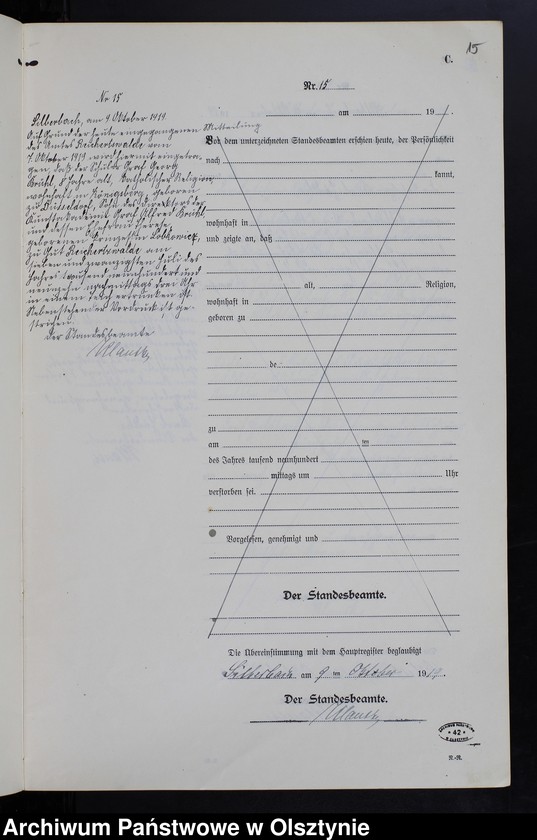 15
C.
Nr. 15
Nr 15
Silberbach, am 9 Oktober 1919
Auf Grund der heute eingegangenen Mitteilung
des Amtes Reichertswalde vom
7. Oktober 1919 wird hiermit eingetra-
gen, daß der Schüler Graf Georg
5 Jahre alt, katholischer Religion,
wohnhaft in Königsberg, geboren
zu Sohn des Direktors der
Kunstakademie Graf Alfred
und dessen Ehefrau Therese
geborenen Prinzessin Lobkowicz,
zu Gut Reichertswalde am
sieben und zwanzigsten Juli des
Jahres tausend neunhundert und
neunzehn nachmittags drei Uhr
in einem Teich ertrunken ist.
Nebenstehender Vordruck ist ge-
strichen.
Der Standesbeamte
am 19
Vor dem unterzeichneten Standesbeamten erschien heute, der Persönlichkeit
nach
kannt,
wohnhaft in
und zeigte an, daß
alt, Religion,
wohnhaft in
geboren zu
de
zu
am im
des Jahres tausend neunhundert
mittags um Uhr
verstorben sei.
Vorgelesen, genehmigt und
Der Standesbeamte.
Die Übereinstimmung mit dem Hauptregister beglaubigt
Silberbach am 9 ten Oktober 1919.
Der Standesbeamte.
42
Archiwum Państwowe w Olsztynie